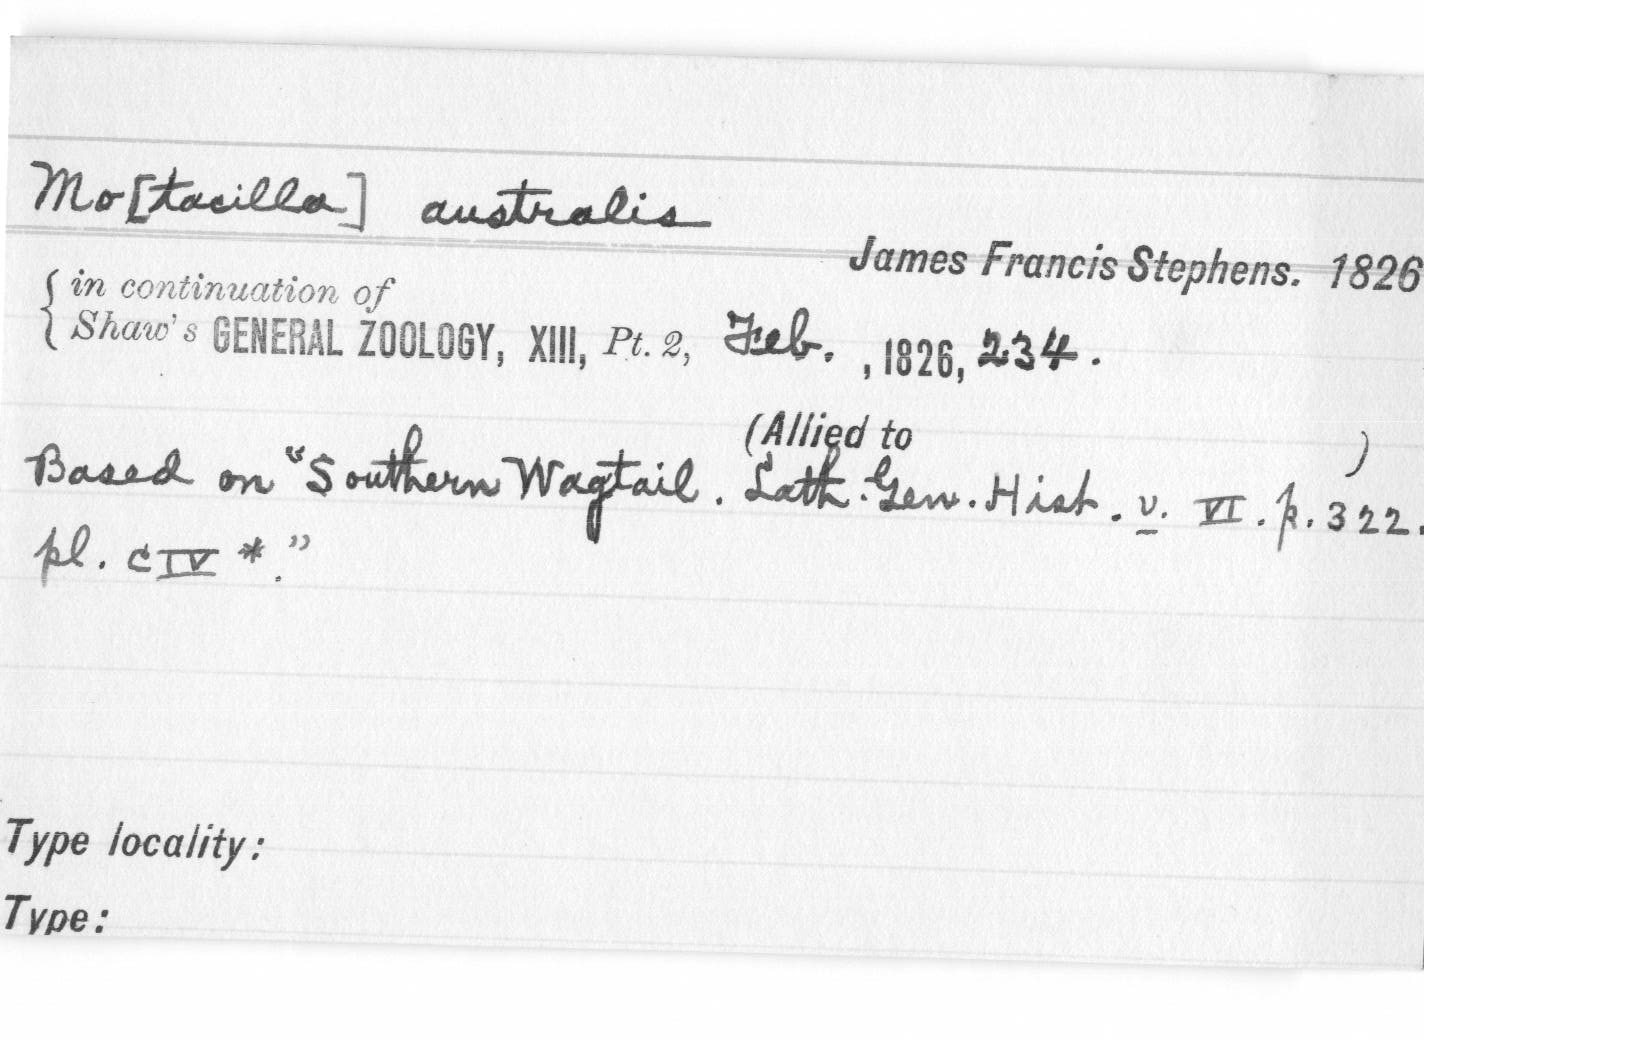 Mo[tacilla] australis
James Francis Stephens. 1826
{ in continuation of
Shaw's GENERAL ZOOLOGY, XIII, Pt. 2, Feb. , 1826, 234.
(Allied to )
Based on "Southern Wagtail. Lath. Gen. Hist. v. VI. p. 322.
pl. CIV *."
Type locality:
Type: